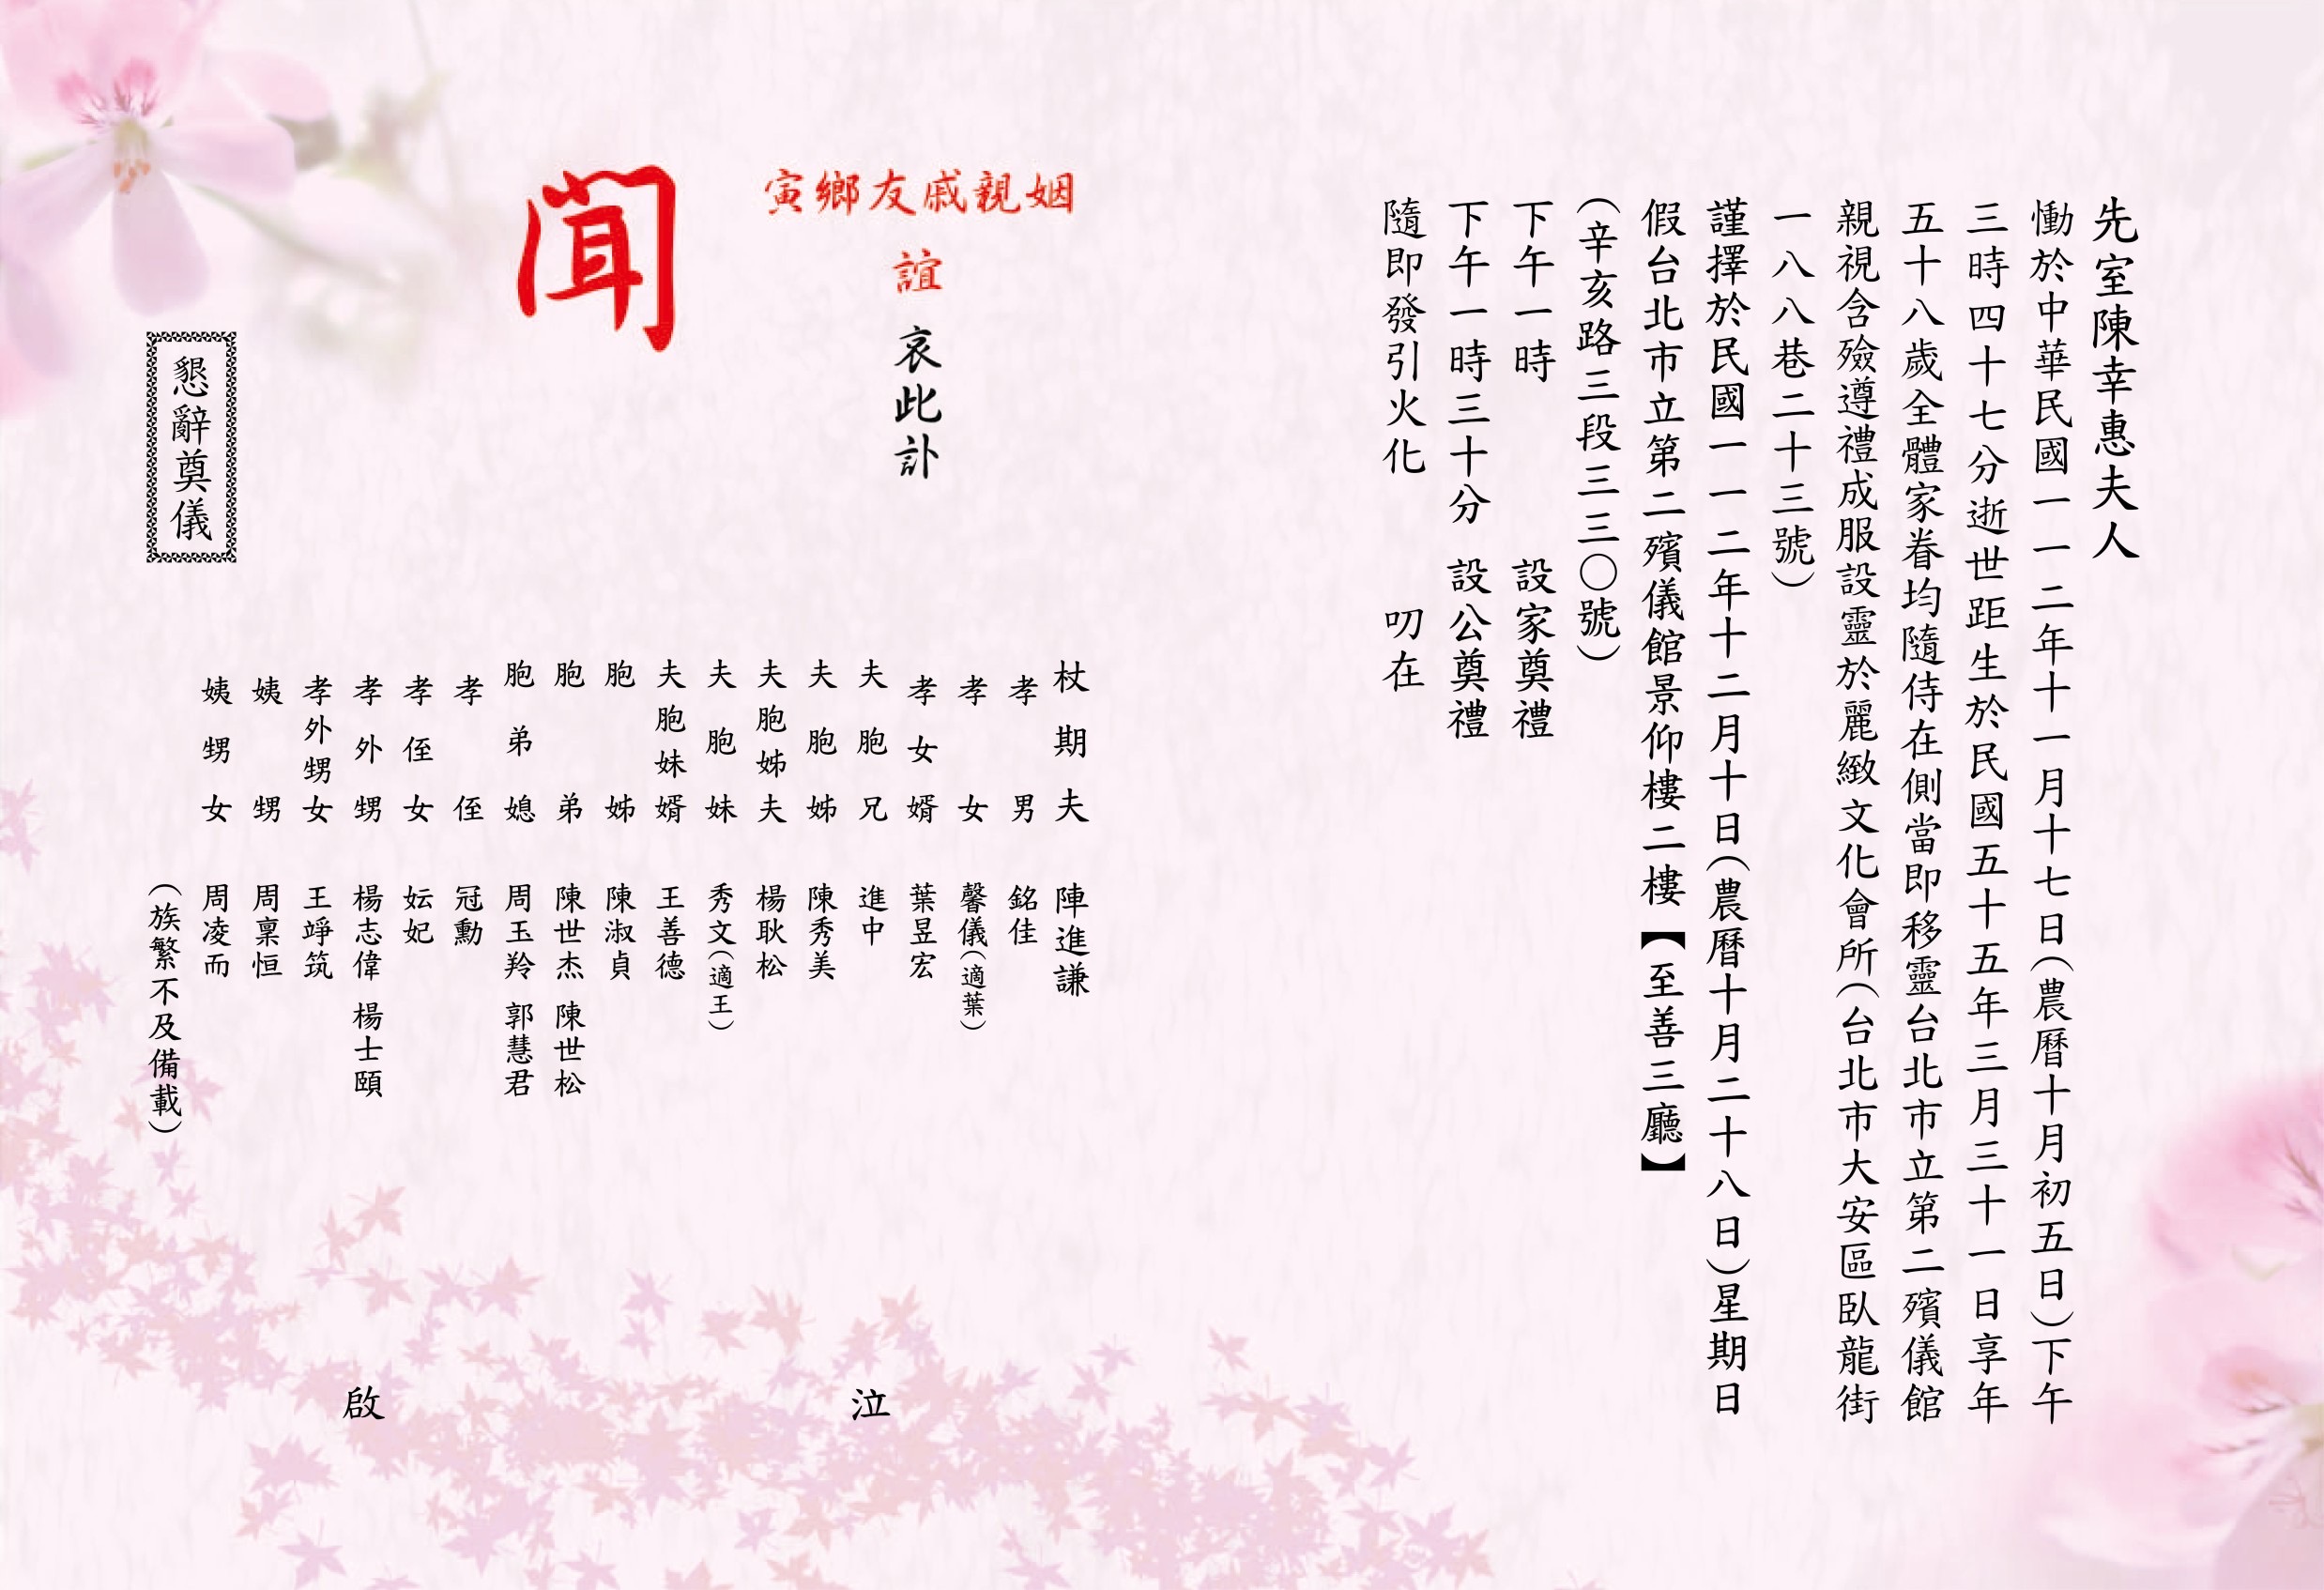 先室陳幸惠夫人
慟於中華民國一一二年十一月十七日(農曆十月初五日)下午
三時四十七分逝世距生於民國五十五年三月三十一日享年
五十八歲全體家眷均隨侍在側當即移靈台北市立第二殯儀館
親視含殮遵禮成服設靈於麗緻文化會所(台北市大安區臥龍街
一八八巷二十三號)
謹擇於民國一一二年十二月十日(農曆十月二十八日)星期日
假台北市立第二殯儀館景仰樓二樓【至善三廳】
(辛亥路三段三三〇號)
下午一時 設家奠禮
下午一時三十分 設公奠禮
隨即發引火化 叨在
姻親戚友鄉寅
誼 哀此訃
聞
杖期夫 陣進謙
孝男 銘佳
孝女 馨儀(適葉)
孝女婿 葉昱宏
夫胞兄 進中
夫胞姊 陳秀美
夫胞姊夫 楊耿松
夫胞妹 秀文(適王)
夫胞妹婿 王善德
胞姊 陳淑貞
胞弟 陳世杰 陳世松
胞弟媳 周玉羚 郭慧君
孝侄 冠勳
孝侄女 妘妃
孝外甥 楊志偉 楊士頤
孝外甥女 王竫筑
姨甥 周稟恒
姨甥女 周凌而
(族繁不及備載)
泣啟
懇辭奠儀